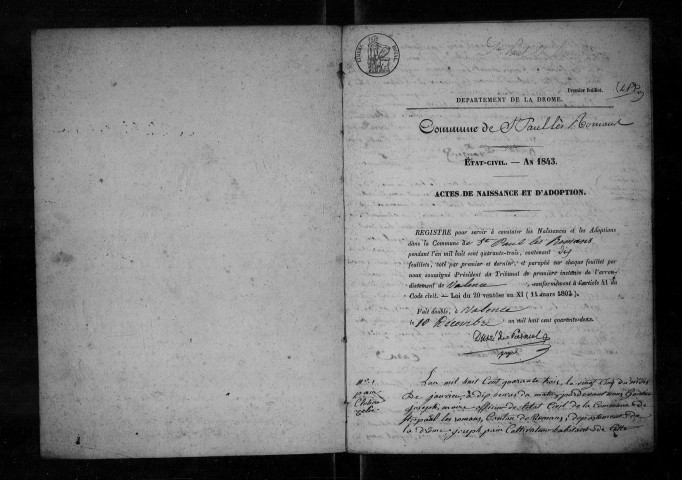 Premier feuillet.
DÉPARTEMENT DE LA DROME.
Commune de St Paul lès Romans
ÉTAT-CIVIL. — AN 1843.
ACTES DE NAISSANCE ET D'ADOPTION.
REGISTRE pour servir à constater les Naissances et les Adoptions
dans la Commune de St Paul les Romans
pendant l'an mil huit cent quarante-trois, contenant dix
feuillets, coté par premier et dernier, et paraphé sur chaque feuillet par
nous soussigné Président du Tribunal de première instance de l'arron-
dissement de Valence, conformément à l'article 41 du
Code civil. — Loi du 20 ventôse an XI (11 mars 1803).
Fait double, à Valence
le 10 Décembre an mil huit cent quarante-deux.
N° 1
L'an mil huit Cent quarante trois, le vingt Cinq du mois
De janvier, à dix heures du matin, pardevant nous
joseph, maire officier de l'état Civil de la Commune de
St paul les romans, Canton de Romans, département de
la drôme, joseph pain Cultivateur habitant de cette